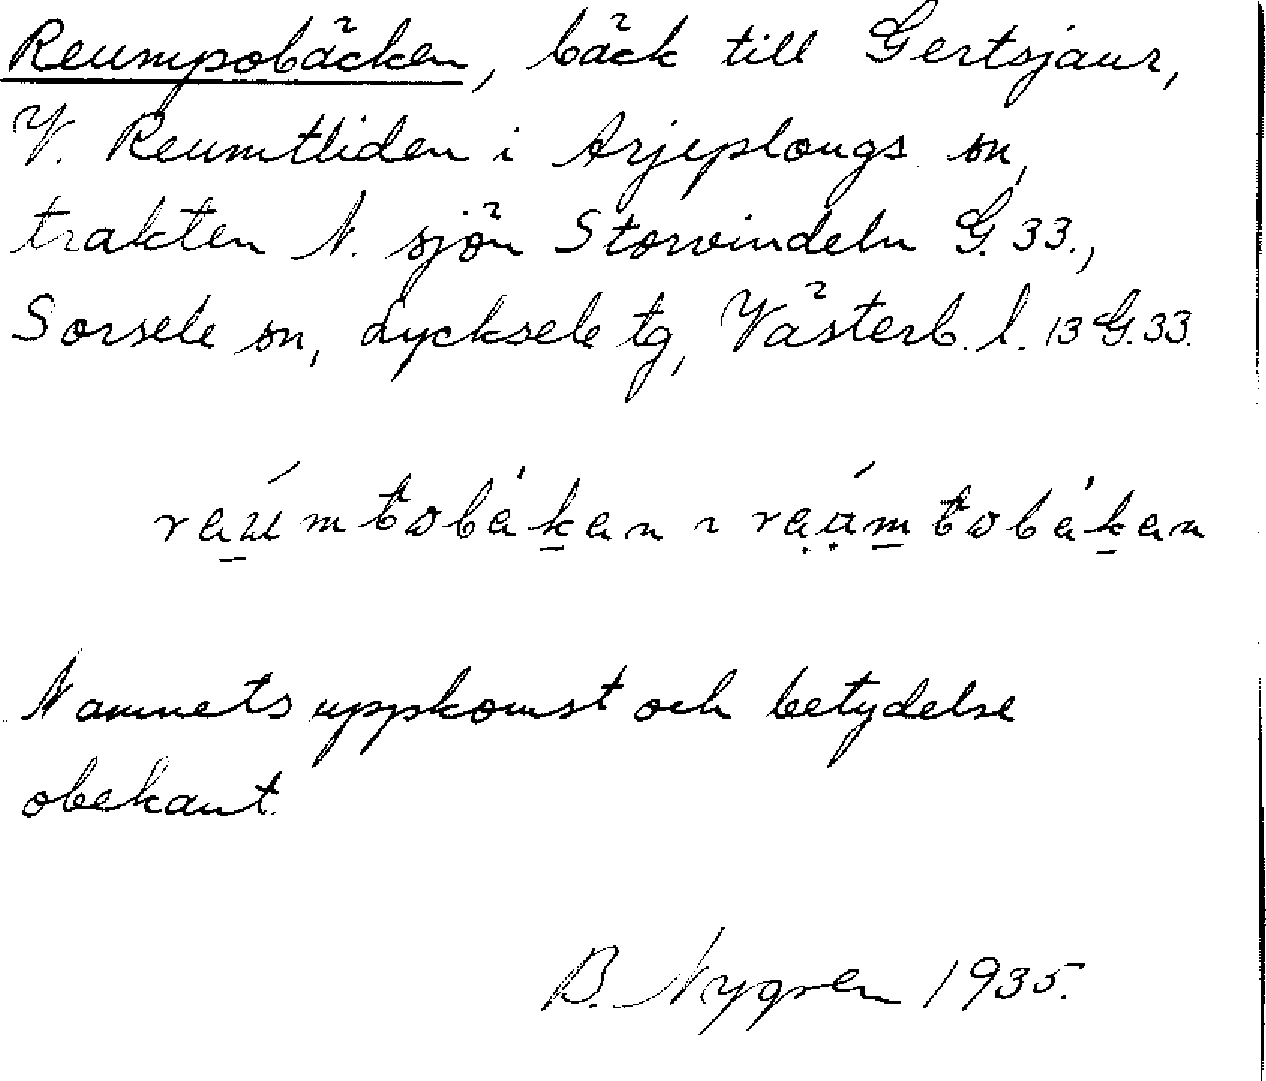 Reumpobäcken, bäck till Gertsjaur,
V. Reumtliden i Arjeplougs sn,
trakten N. sjön Storvindeln G. 33.,
Sorsele sn, Lycksele tg, Västerb. l. 13 G. 33.
raúmtobäkan ~ raúmtobäkan
Namnets uppkomst och betydelse
obekant.
B. Nygren 1935.